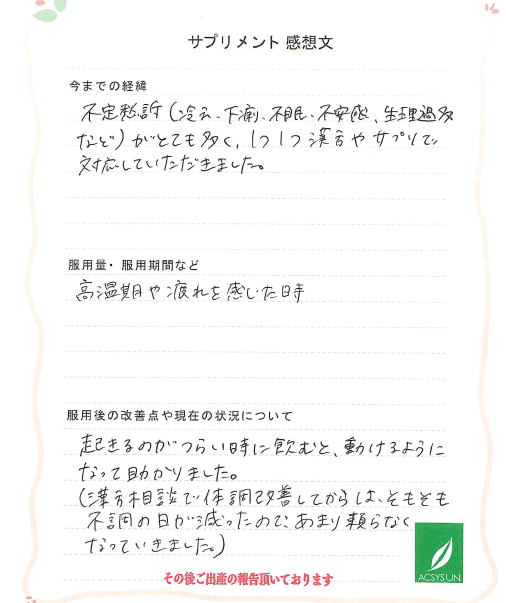 サプリメント 感想文
今までの経緯
不定愁訴（冷え、下痢、不眠、不安感、生理過多
など）がとても多く、1つ1つ漢方やサプリで
対応していただきました。
服用量・服用期間など
高温期や疲れを感じた時
服用後の改善点や現在の状況について
起きるのがつらい時に飲むと、動けるように
なって助かりました。
（漢方相談で体調改善してからは、そもそも
不調の日が減ったので、あまり頼らなく
なっていきました。）
ACSYSUN
その後ご出産の報告頂いております